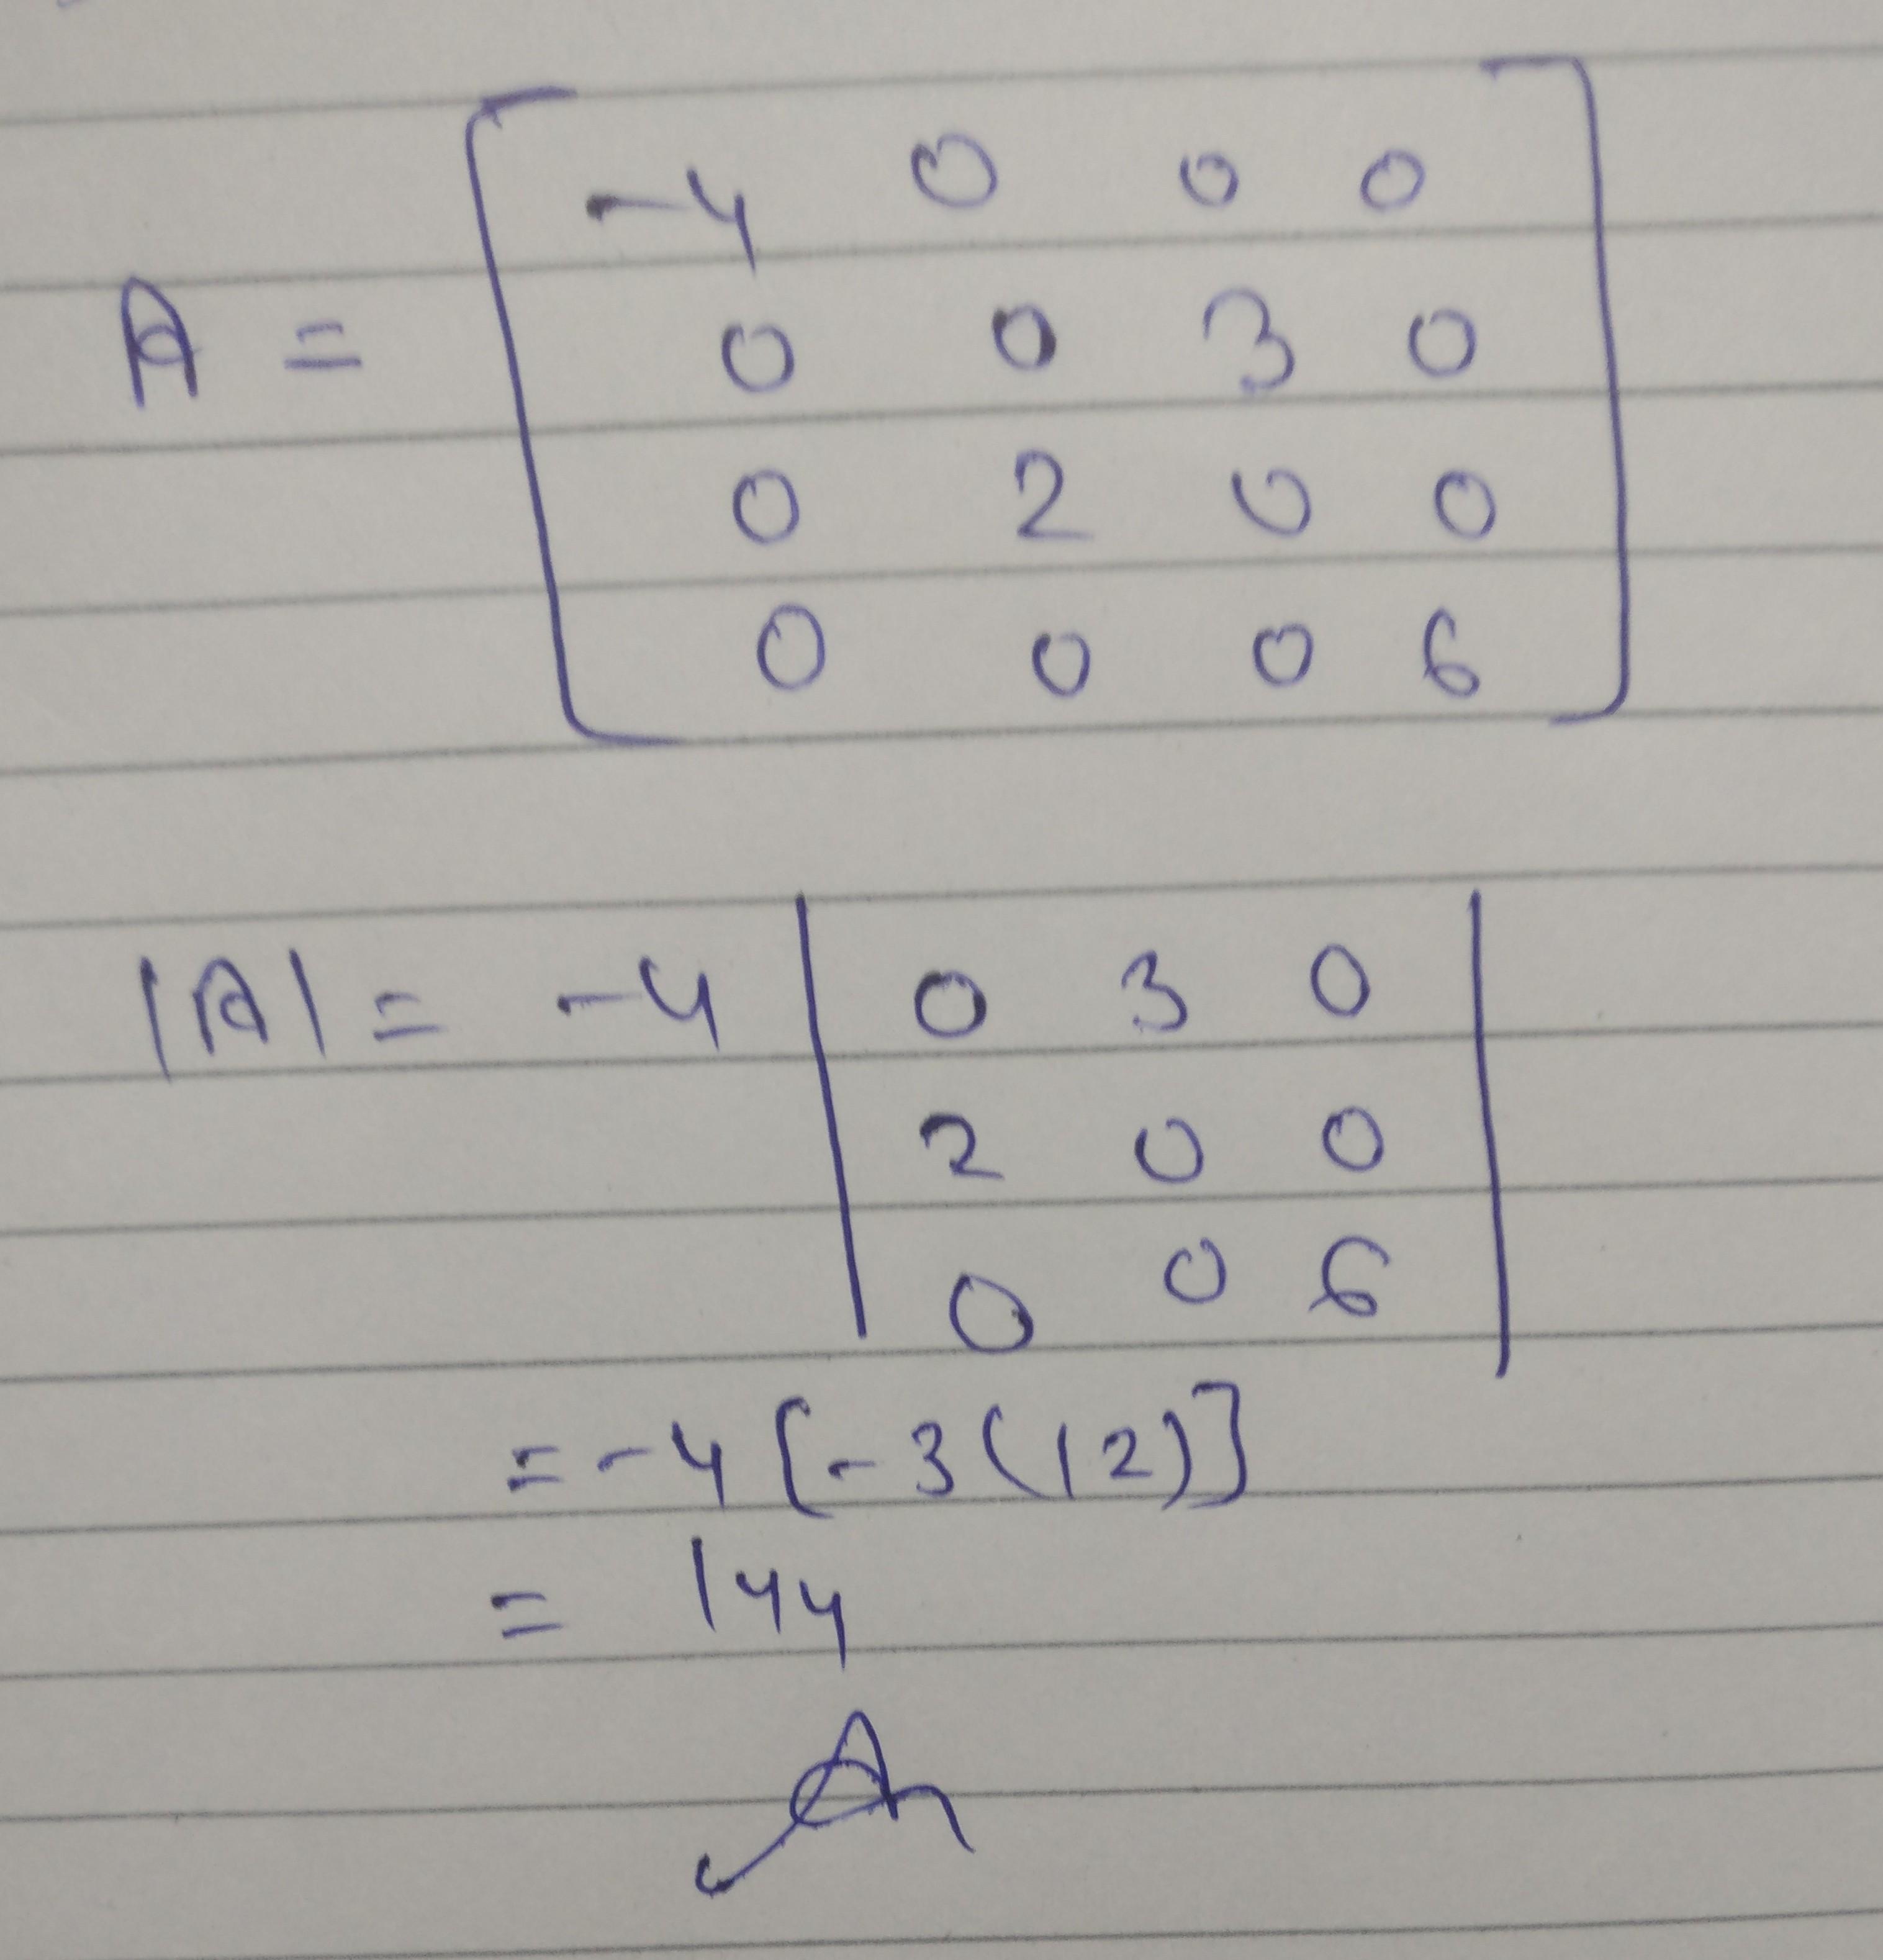 A = [ -4 0 0 0
0 0 3 0
0 2 0 0
0 0 0 6 ]
|A| = -4 | 0 3 0
2 0 0
0 0 6 |
= -4 [-3(12)]
= 144